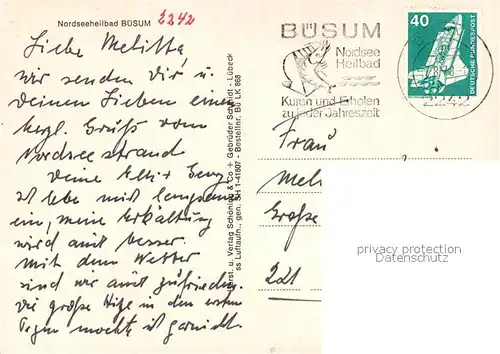 Nordseeheilbad BÜSUM
2242
Liebe Melitta
wir senden dir u.
deinen Lieben einen
herzl. Gruß vom
Nordseestrand
deine
lebe mich langsam
ein, meine Erkältung
wird auch besser.
Mit dem Wetter
sind wir auch zufrieden.
die große Hitze in den ersten
Tagen mochte ich garnicht.
Verlag Schöning & Co + Gebrüder Schmidt - Lübeck
ss Luftaufn., gen. SH 1-41807 - Bestellnr. Bü LK 668
BÜSUM
Nordsee
Heilbad
Kuren und Erholen
zu jeder Jahreszeit
40
DEUTSCHE BUNDESPOST
2242
Frau
Große
221
privacy protection
Datenschutz